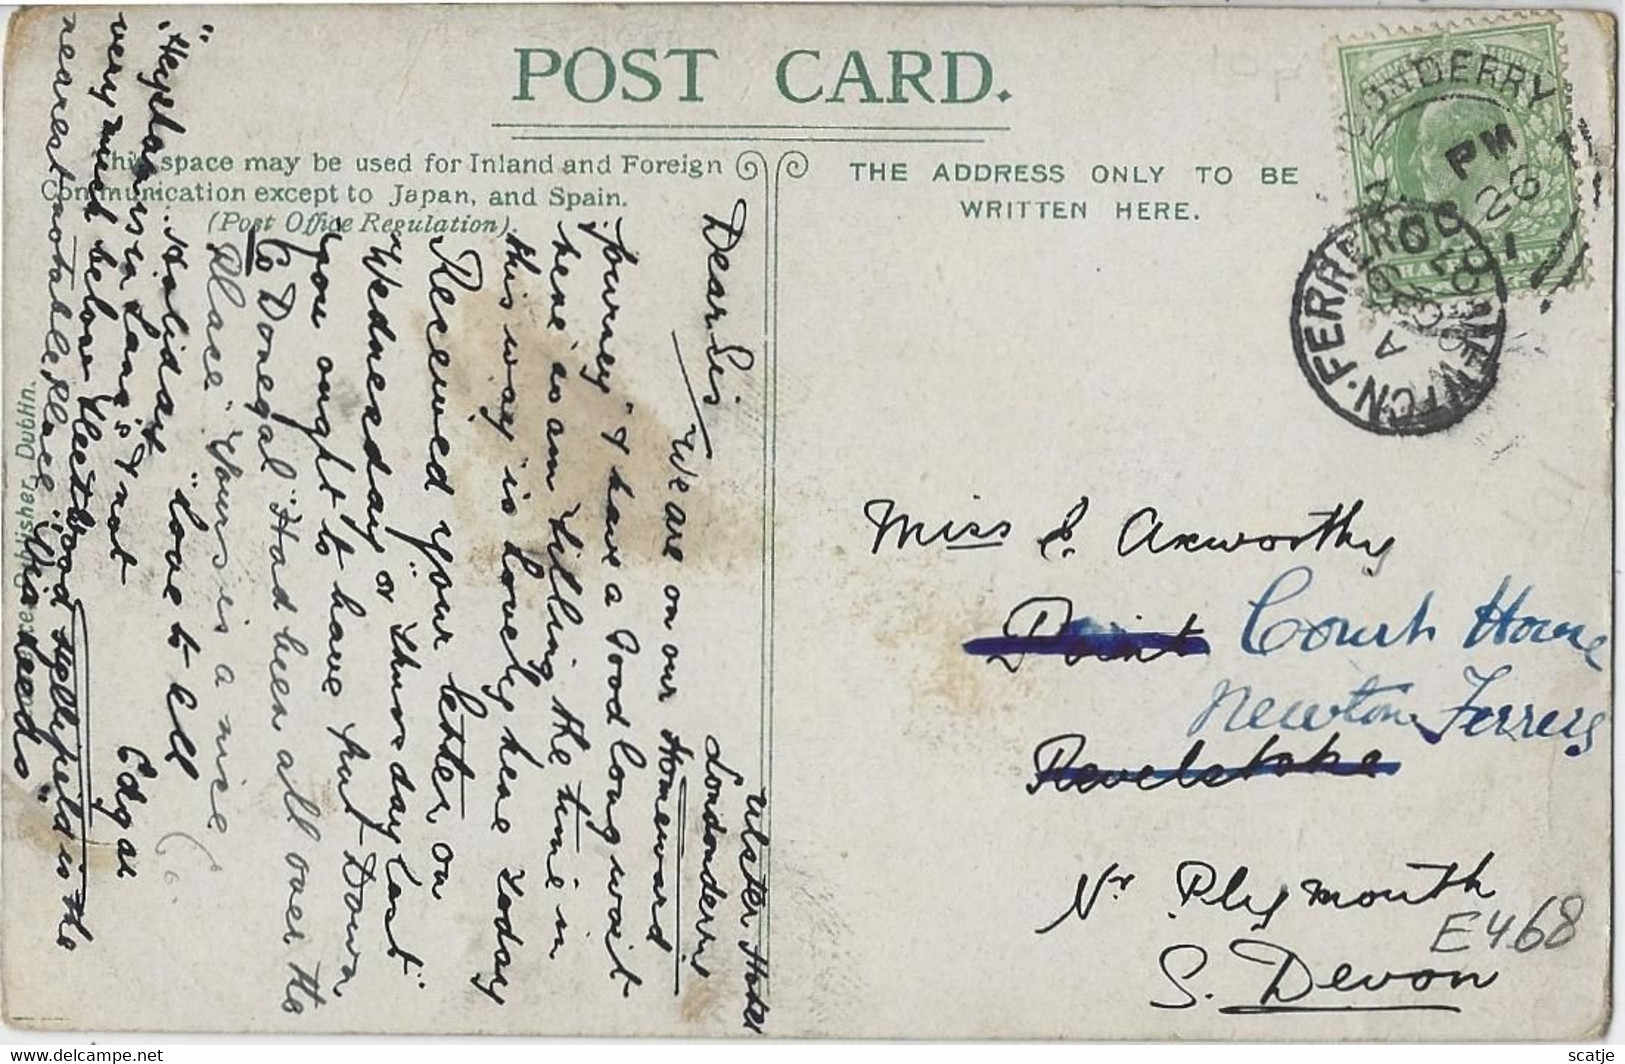 POST CARD.
This space may be used for Inland and Foreign
Communication except to Japan, and Spain.
(Post Office Regulation).
THE ADDRESS ONLY TO BE
WRITTEN HERE.
LONDONDERRY
PM
26
NEWTON·FERRERS
A
HALF PENNY
Miss E. Axworthy
Point
Court House
Newton Ferrers
Revelstoke
Nr Plymouth
S. Devon
E468
Ulster Hotel
Londonderry
Dear Sis
We are on our Homeward
journey" & have a Good long wait
here" so am killing the time in
this way" is lovely here today
Received your letter on
Wednesday or "Thursday last"
you ought to have put Down
Co Donegal "Had been all over the
Place" Yours is a nice
Holiday "Love to all
Edgar
"Heysham is in Lanc's & not
very much below Fleetwood Hellifield is the
nearest notable Place "Via Leeds"
Publisher, Dublin.
scatje
delcampe.net